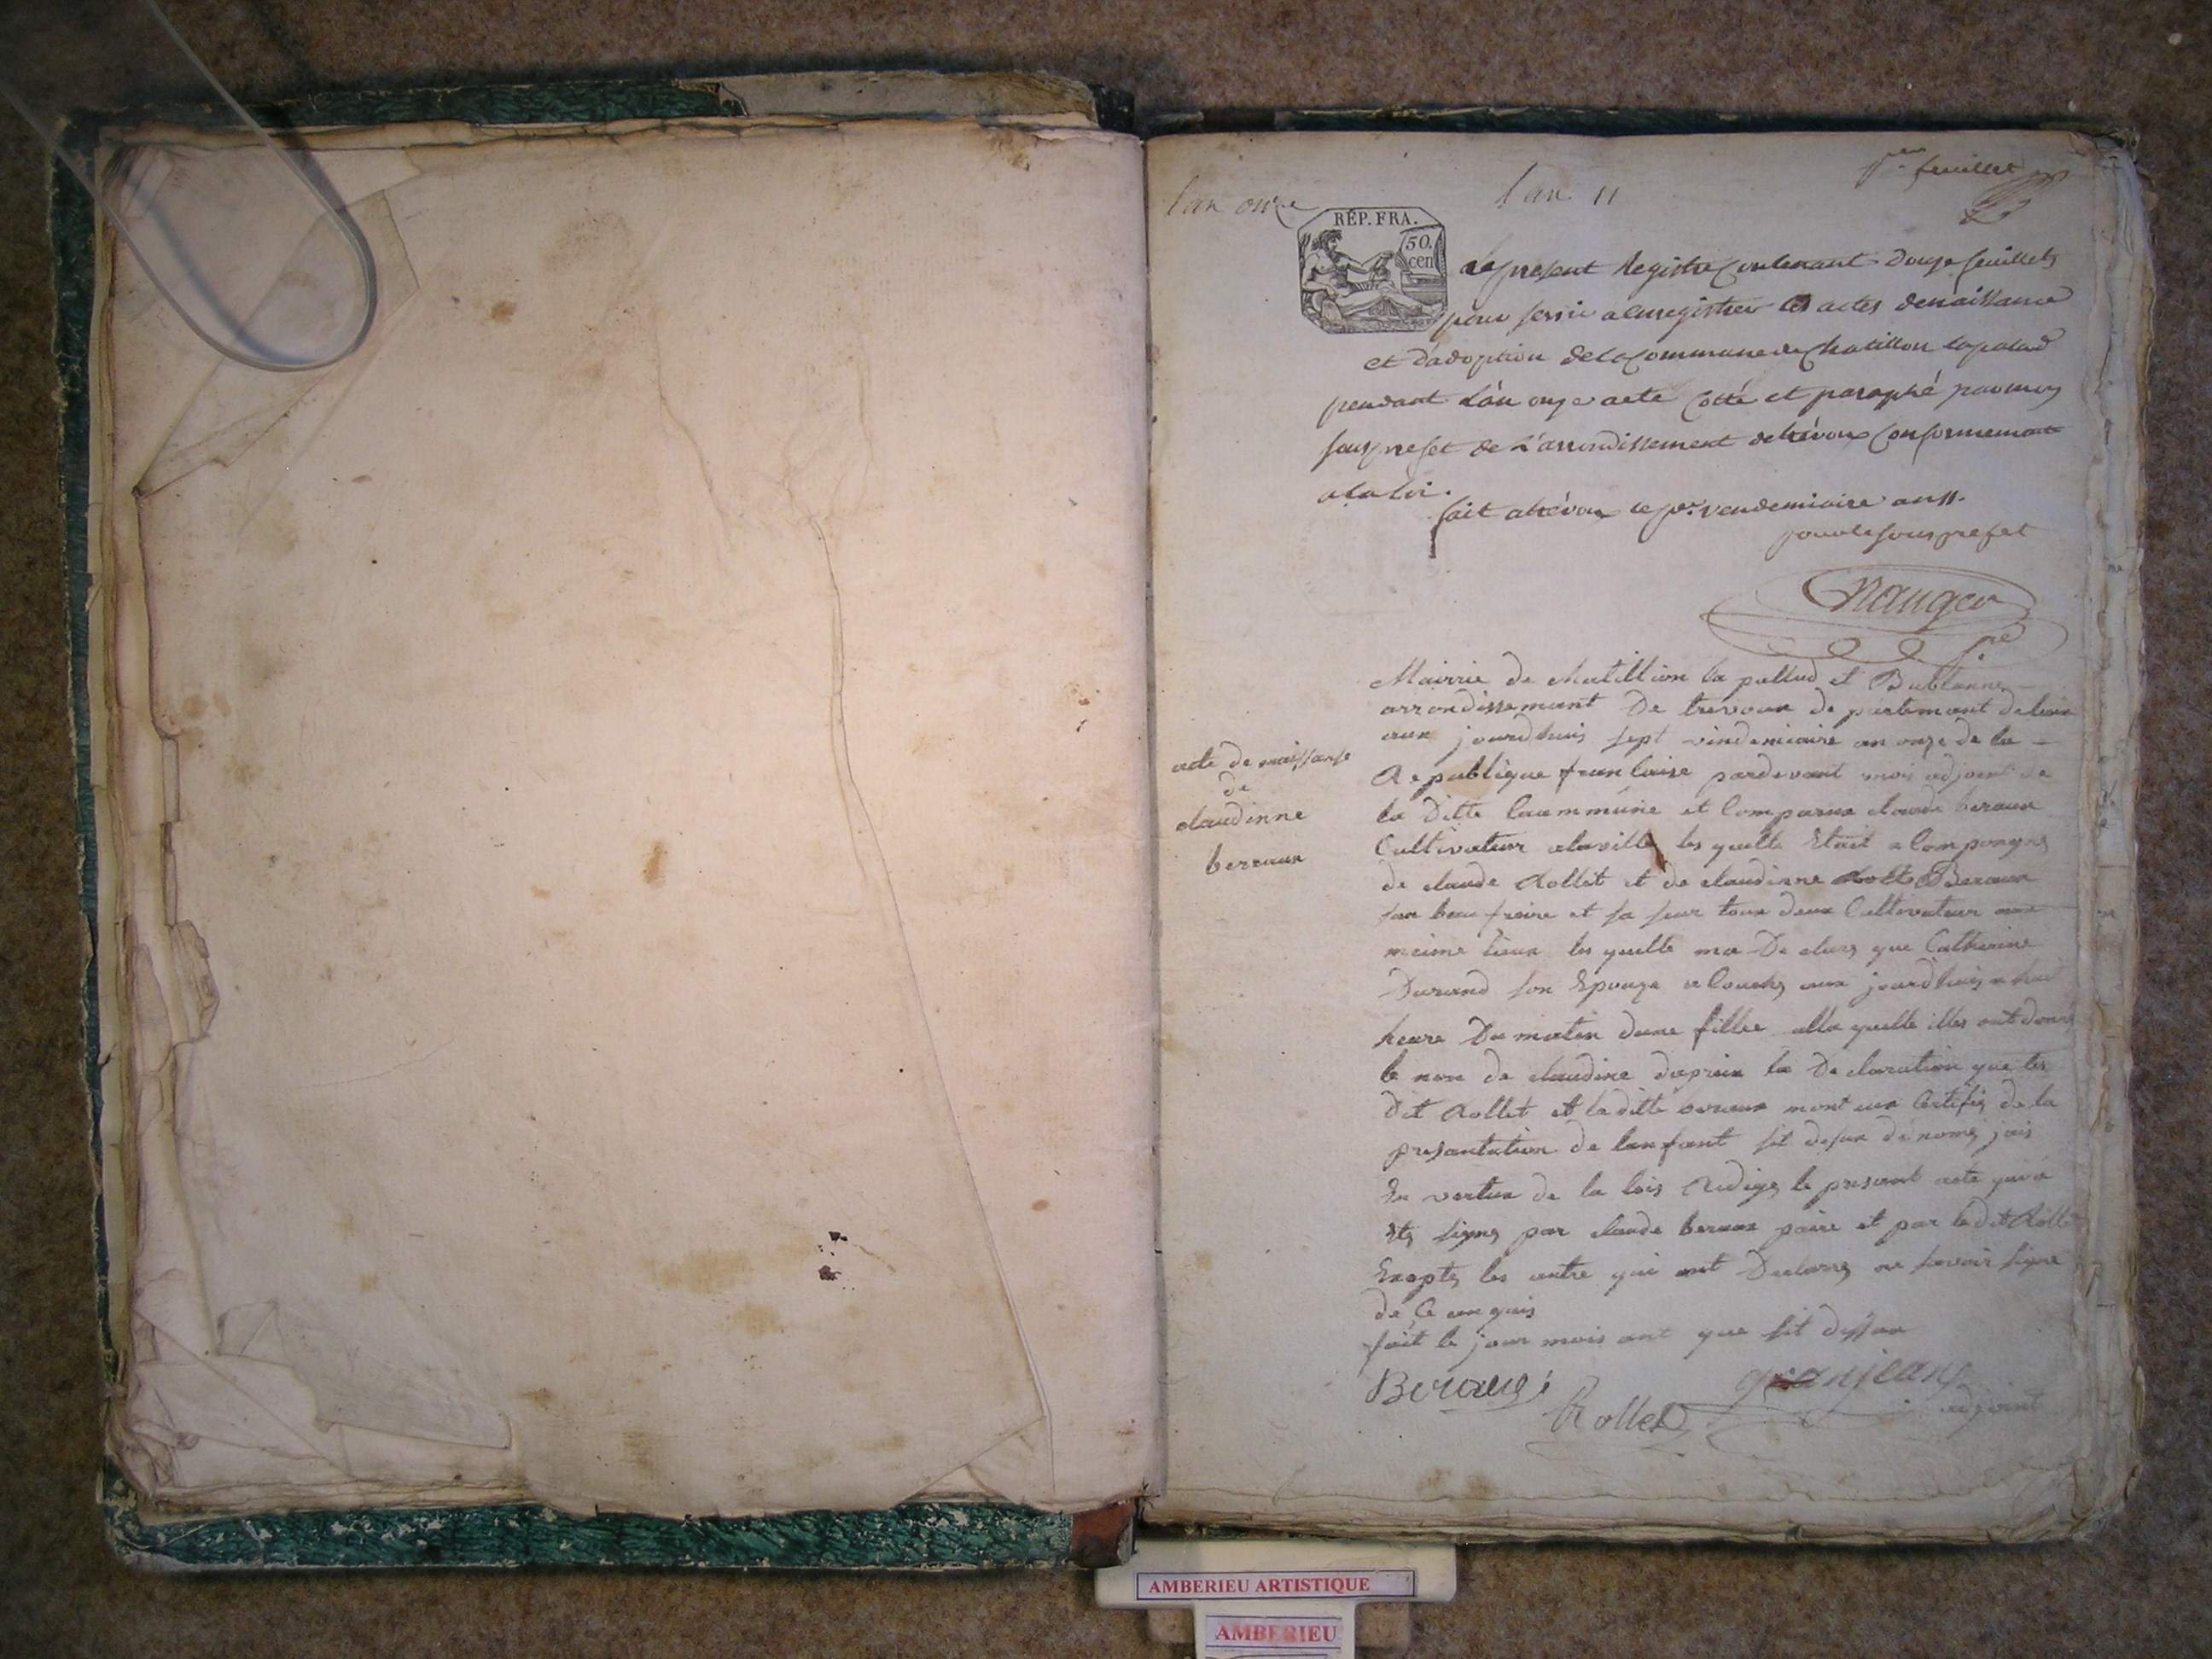 lan onze
l an 11
p.er feuillet
RÉP. FRA.
50.
cen
Le present Registre Contenant douze feuillets
pour servir a enregistrer les actes denaissance
et d'adoption de la Commune de Chatillon lapalud
pendant L'an onze acté Cotté et paraphé par moy
sous prefet de L'arrondissement detrévoux Conformement
a la loi.
fait atrévoux ce p.er vendemiaire an 11.
pour le sous prefet
Mairie de chatillion la pallud et Bublanne
arrondissemant De trevoux de partemant delain
aux jourdhuis sept vindemiaire an onze de la
Republique franCaise pardevant mois adjoint de
la Ditte Caummune et Comparux claude beraux
Cultivateur alaville les quelle Etait a Compangnes
de claude Rollet et de claudinne Beraux
son beau fraire et sa seur toux deux Cultivateur aux
meime lieux les quelle ma De clare que Catherine
Durand son Epouze a Couche aux jourdhuis a huit
heure Du matin dune fillee alla quelle illes ont donne
le non de claudine dapreix la De claration que les
Dit Rollet et la ditte beraux mont aux Certifie de la
presantation de lanfant sit desux denome jais
En vertux de la lois Redige le present acte qui a
Ete signe par claude beraux paire et par ledit Rollet
Exapte les autre qui ont Declarre ne savoir signe
de Ce anquis
fait le jour mois ant que sit dessux
acte de naissanse
de
claudinne
berraux
Beraux
Rollet
granjean
adjoint
AMBERIEU ARTISTIQUE
AMBERIEU